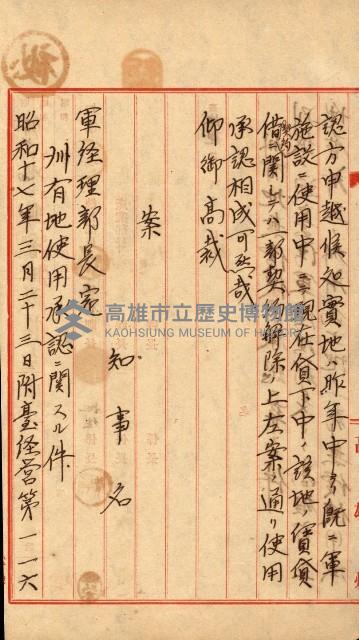 認方申越候処實地ハ昨年中ヨリ既ニ軍
施設ニ使用中ニテ現在貸下中ノ該地ノ賃貸
借契約ニ関シテハ一部契約解除ノ上左案ノ通リ使用
承認相成可然哉
仰御高裁
案
知事名
軍経理部長宛
州有地使用承認ニ関スル件
昭和十七年三月二十三日附臺経営第一一六
高雄市立歷史博物館
KAOHSIUNG MUSEUM OF HISTORY
高雄州